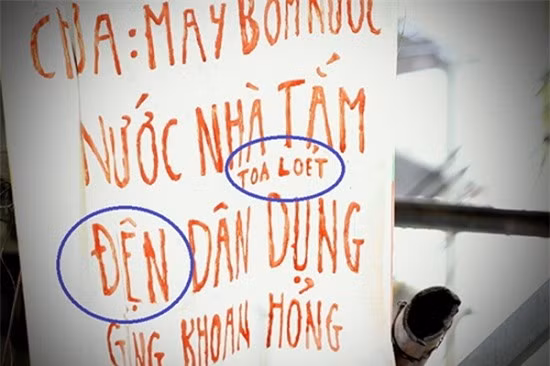 : MAY BƠM NƯỚC
NƯỚC NHÀ TẮM
TOA LOÉT
ĐỆN DÂN DỤNG
KHOAN HỎNG